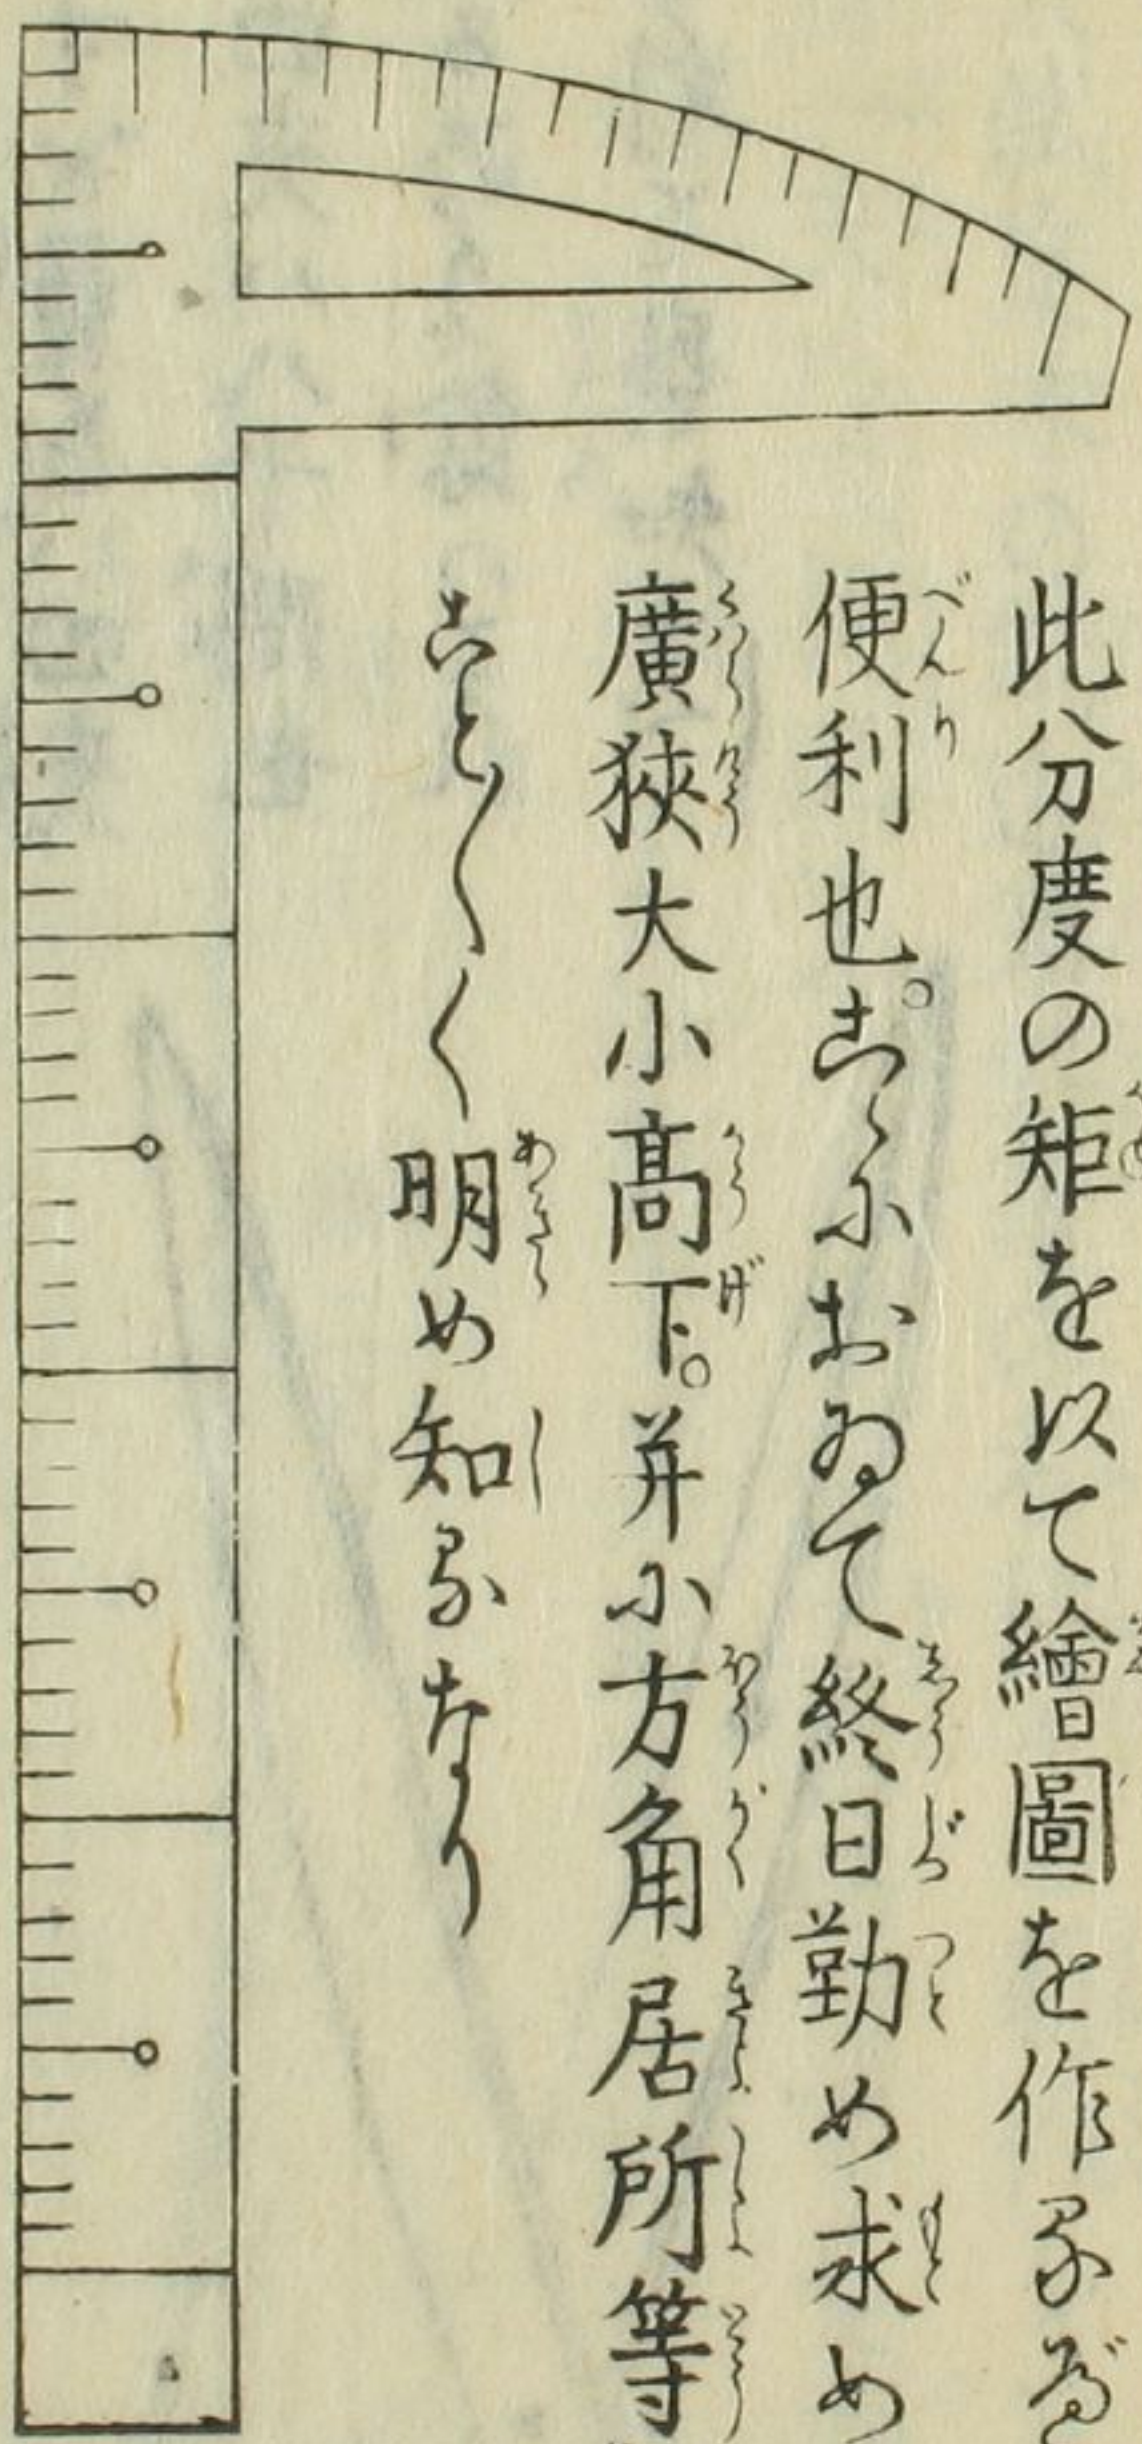 此分度の矩を以て繪圖を作るに
便利也。こゝにおゐて終日勤め求め
廣狹大小高下。并に方角居所等
こと〴〵く明め知るなり